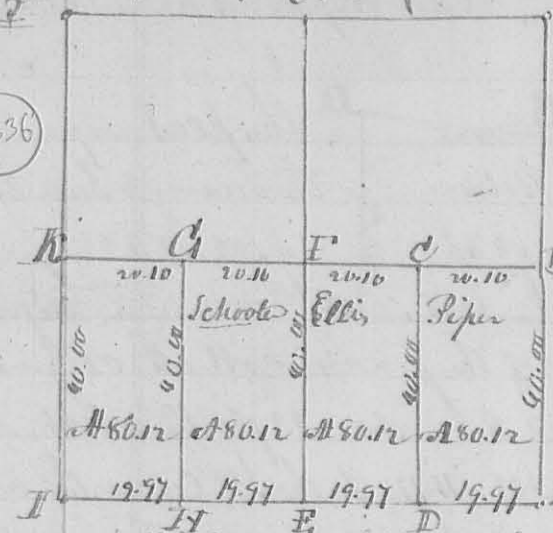 36
K G F C
20.10 20.10 20.10 20.10
Schooler Ellis Piper
40.00 40.00 40.00 40.00 40.00
A 80.12 A 80.12 A 80.12 A 80.12
19.97 19.97 19.97 19.97
I H E D